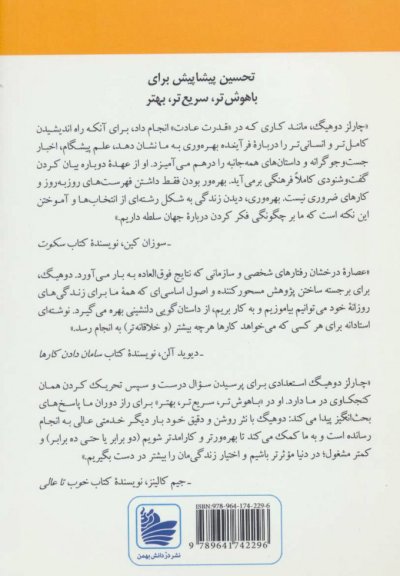 تحسین پیشاپیش برای
باهوش‌تر، سریع‌تر، بهتر
«چارلز دوهیگ، مانند کاری که در «قدرت عادت» انجام داد، برای آنکه راه اندیشیدن
کامل‌تر و انسانی‌تر را دربارهٔ فرآیندهٔ بهره‌وری به ما نشان دهد، علم پیشگام، اخبار
جست‌وجوگرانه و داستان‌های همه‌جانبه را درهم می‌آمیزد. او از عهدهٔ دوباره بیان کردن
گفت‌وشنودی کاملاً فرهنگی برمی‌آید. بهره‌ور بودن فقط داشتن فهرست‌های روزبه‌روز و
کارهای ضروری نیست. بهره‌وری، دیدن زندگی به شکل رشته‌ای از انتخاب‌ها و آموختن
این نکته است که ما بر چگونگی فکر کردن دربارهٔ جهان سلطه داریم.»
ـ سوزان کین، نویسندهٔ کتاب سکوت
«عصارهٔ درخشان رفتارهای شخصی و سازمانی که نتایج فوق‌العاده به بار می‌آورد. دوهیگ،
برای برجسته ساختن پژوهش مسحورکننده و اصول اساسی‌ای که همهٔ ما برای زندگی‌های
روزانهٔ خود می‌توانیم بیاموزیم و به کار بریم، از داستان‌گویی دلنشینی بهره می‌گیرد. نوشته‌ای
استادانه برای هر کسی که می‌خواهد کارها هرچه بیشتر (و خلاقانه‌تر) به انجام رسد.»
ـ دیوید آلن، نویسندهٔ کتاب سامان دادن کارها
«چارلز دوهیگ استعدادی برای پرسیدن سؤال درست و سپس تحریک کردن همان
کنجکاوی در ما دارد. او در «باهوش‌تر، سریع‌تر، بهتر» برای راز دوران ما پاسخ‌های
بحث‌انگیز پیدا می‌کند: دوهیگ با نثر روشن و دقیق خود بار دیگر خدمتی عالی به انجام
رسانده است و به ما کمک می‌کند تا بهره‌ورتر و کارامدتر شویم (دو برابر یا حتی ده برابر) و
کمتر مشغول؛ در دنیا مؤثرتر باشیم و اختیار زندگی‌مان را بیشتر در دست بگیریم.»
ـ جیم کالینز، نویسندهٔ کتاب خوب تا عالی
ISBN: 978-964-174-229-6
9 789641 742296
نشر دُر دانش بهمن